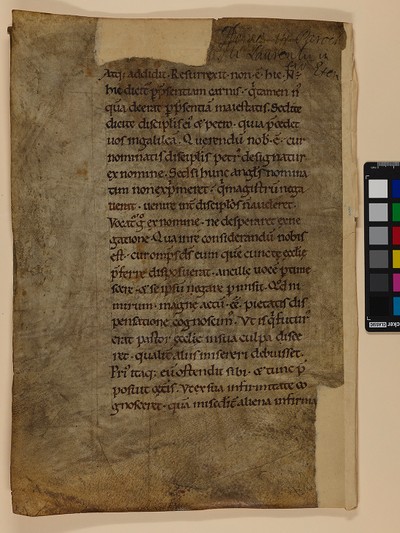 Atq; addidit. Resurrexit. non ē hic. N̄
hic dicit͛ p̄sentiam carnis. q̄ tamen n̄
qua deerat p̄ p̄sentiā maiestatis. Sed ite
dicite discipĺis ei᷒ et petro. quia p̄cedet
uos in galileā. Querendū nob̄ ē. cur
nominatis discipĺis petr᷒ designatur
ex nomine. Sed si hunc angĺs nomina
tim non exp̄meret. q̄ magistrū nega
uerat. uenire int̄ discipĺos n̄ auderet.
Vocat᷒ g̊ ex nomine. ne desperaret ex ne
gatione. Qua in re considerandū nobis
est. cur omp̄s d̄s eum quē cuncte ecclie
p̄ferre disposuerat. ancille uocē p̄time
scere. et se ipsū negare p̄misit. Qd̄ ni
mirum. magne actū. ēē pietatis dis
pensatione cognoscim᷒. Vt is q̄ futur᷒
erat pastor ecclie in sua culpa disce
ret. qualit̄ aliis misereri debuisset.
Pri᷒ itaq; eū ostendit sibi. et tunc p̄
posuit cet̄is. Vt ex sua infirmitate co
gnosceret. quā miscd̄it̄ aliena infirma